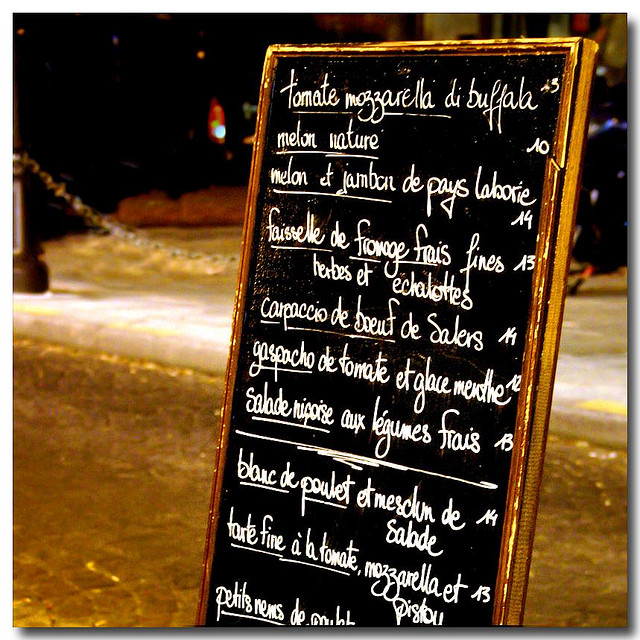 tomate mozzarella di buffala 13
melon nature 10
melon et jambon de pays laborie
14
faisselle de fromage frais fines 13
herbes et echalottes
carpaccio de boeuf de Salers 14
gaspacho de tomate et glace menthe 12
salade niçoise aux légumes frais 13
blanc de poulet et mesclun de 14
salade
tarte fine à la tomate, mozzarella et 13
pistou
petits nems de poulet